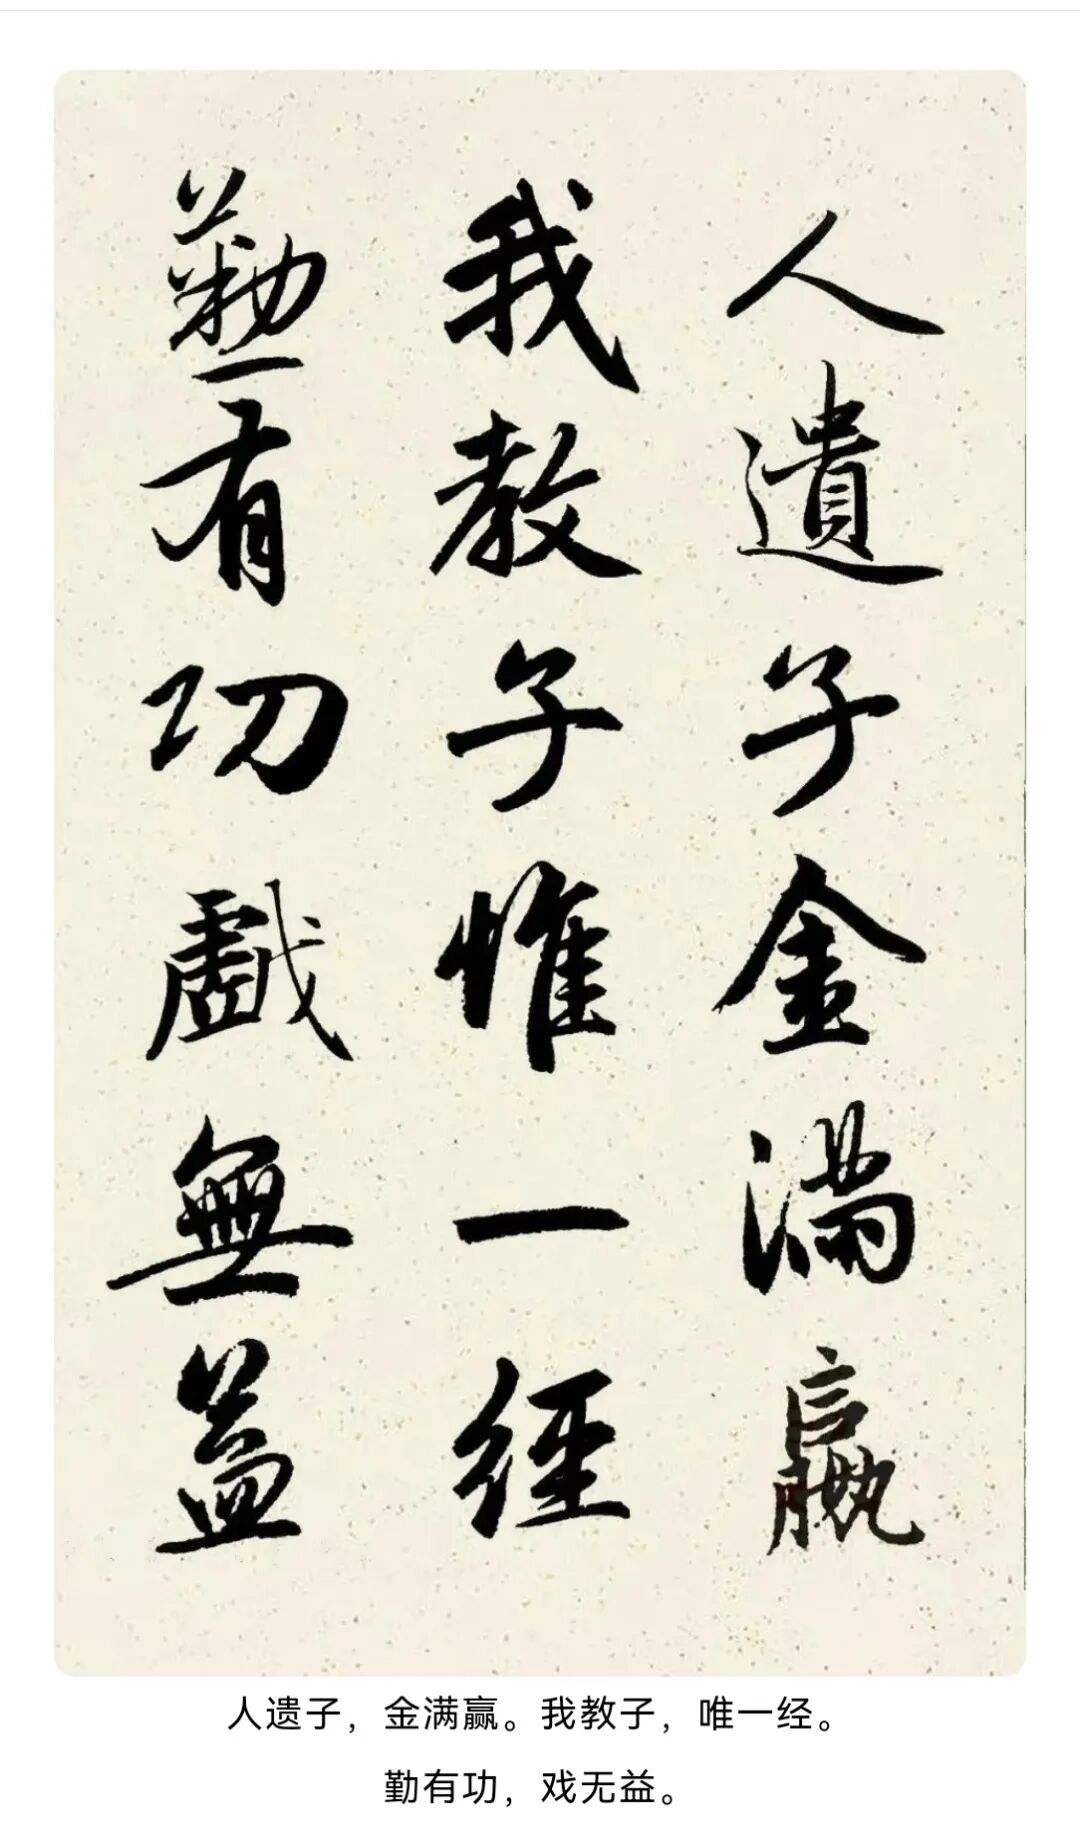 人遺子金满嬴
我教子惟一經
勤有功戲無益
人遗子，金满赢。我教子，唯一经。
勤有功，戏无益。